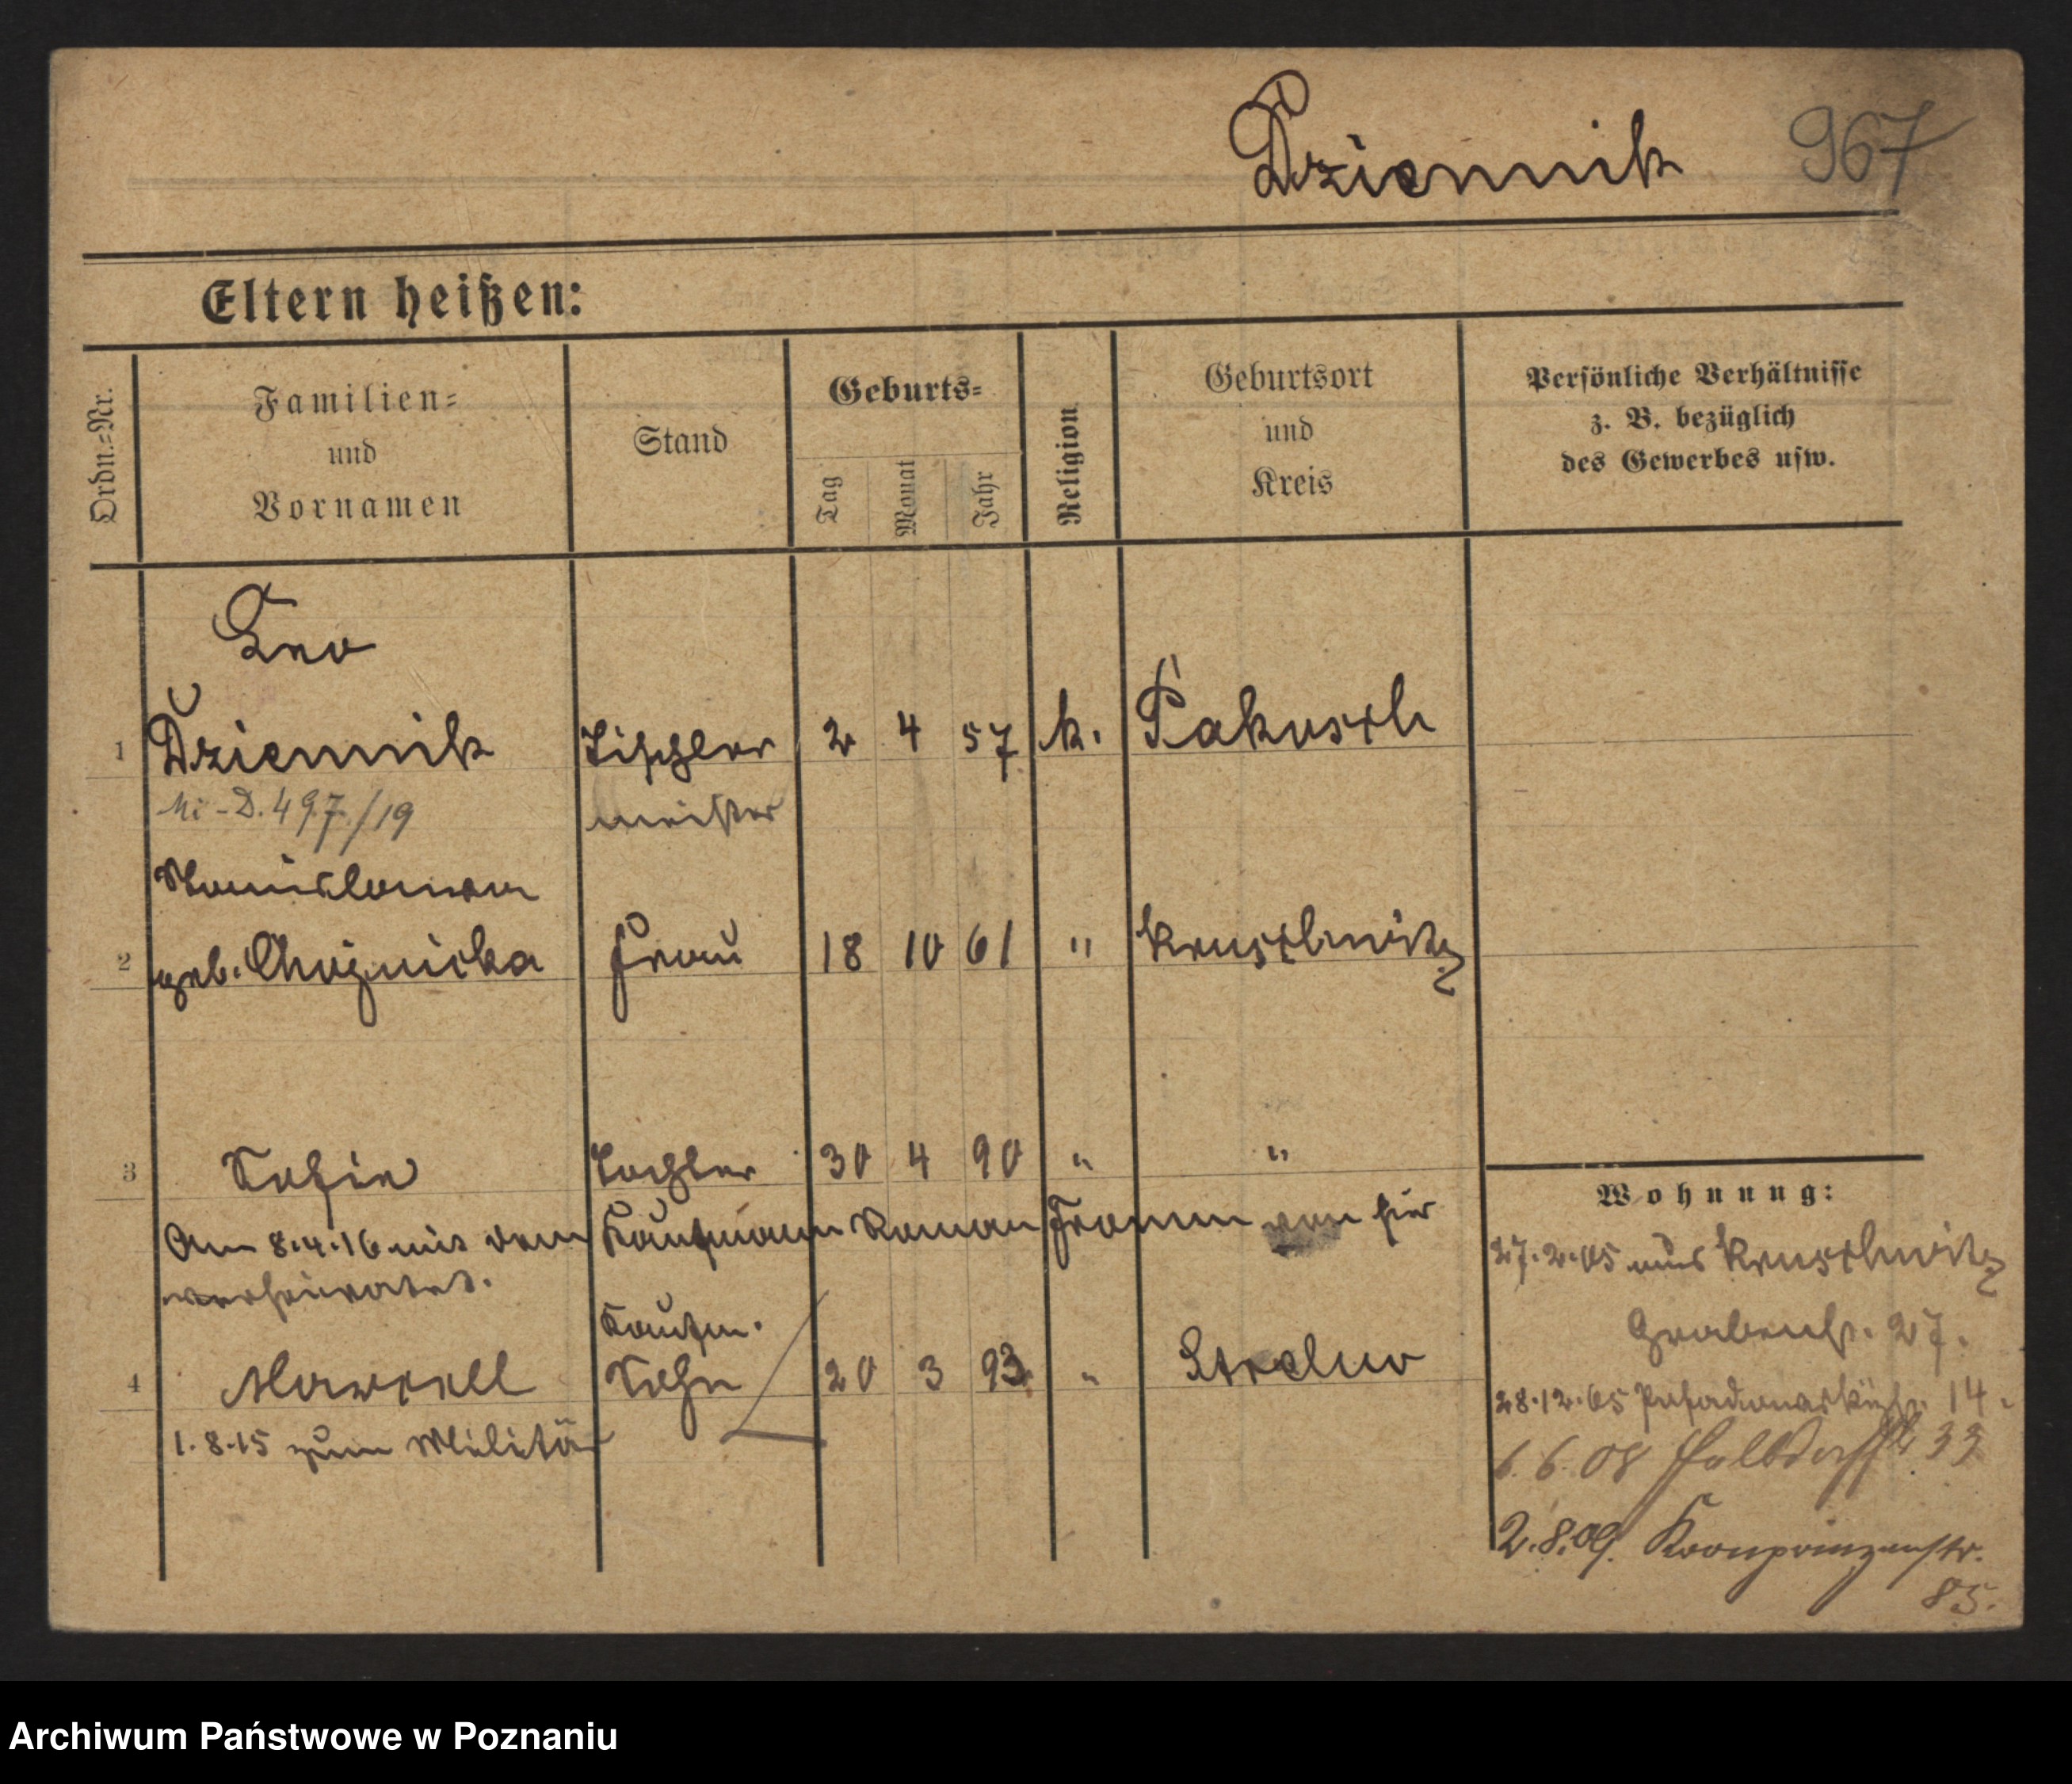 Dziennik 967
Eltern heißen:
Ordn.=Nr.
Familien=
und
Vornamen
Stand
Geburts=
Tag
Monat
Jahr
Religion
Geburtsort
und
Kreis
Persönliche Verhältnisse
z. B. bezüglich
des Gewerbes usw.
Leo
1 Dziennik Tischler 2 4 57 k. Pakosch
Mi-D. 497/19 meister
Stanislawa
2 geb. Chojnicka Frau 18 10 61 " Kruschwitz
3 Sofie Tochter 30 4 90 " "
Am 8.4.16 mit dem Kaufmann Roman Fromm von hier
verheiratet.
Kaufm.
4 Marcell Sohn 20 3 93 " Strelno
1.8.15 zum Militär
Wohnung:
27.2.05 aus Kruschwitz
Grabenstr. 27.
28.12.05 14.
6.6.08 33
2.8.09. Kronprinzenstr.
85.
Archiwum Państwowe w Poznaniu